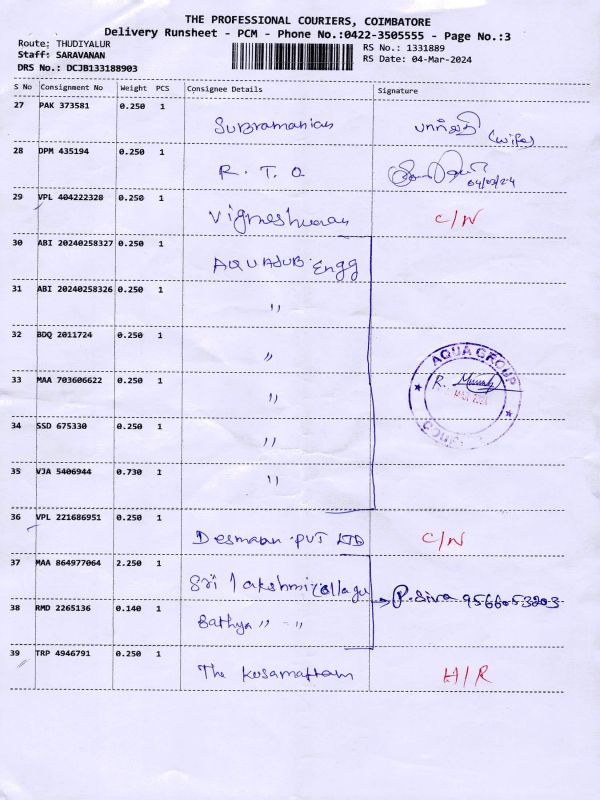 THE PROFESSIONAL COURIERS, COIMBATORE
Delivery Runsheet - PCM - Phone No.:0422-3505555 - Page No.:3
Route: THUDIYALUR
Staff: SARAVANAN
DRS No.: DCJB133188903
RS No.: 1331889
RS Date: 04-Mar-2024
S No Consignment No Weight PCS Consignee Details Signature
27 PAK 373581 0.250 1 Subramanian (wife)
28 DPM 435194 0.250 1 R. T. O 04/03/24
29 VPL 404222328 0.250 1 Vigneshwaran C/N
30 ABI 20240258327 0.250 1 AQUASUB. Engg
31 ABI 20240258326 0.250 1 "
32 BDQ 2011724 0.250 1 "
33 MAA 703606622 0.250 1 "
AQUA GROUP
R.
34 SSD 675330 0.250 1 "
35 VJA 5406944 0.730 1 "
36 VPL 221686951 0.250 1 PVT LTD C/N
37 MAA 864977064 2.250 1 Sri Lakshmi
P. Siva 9566053203
38 RMD 2265136 0.140 1 Sathya " - "
39 TRP 4946791 0.250 1 The Kosamattam H/R